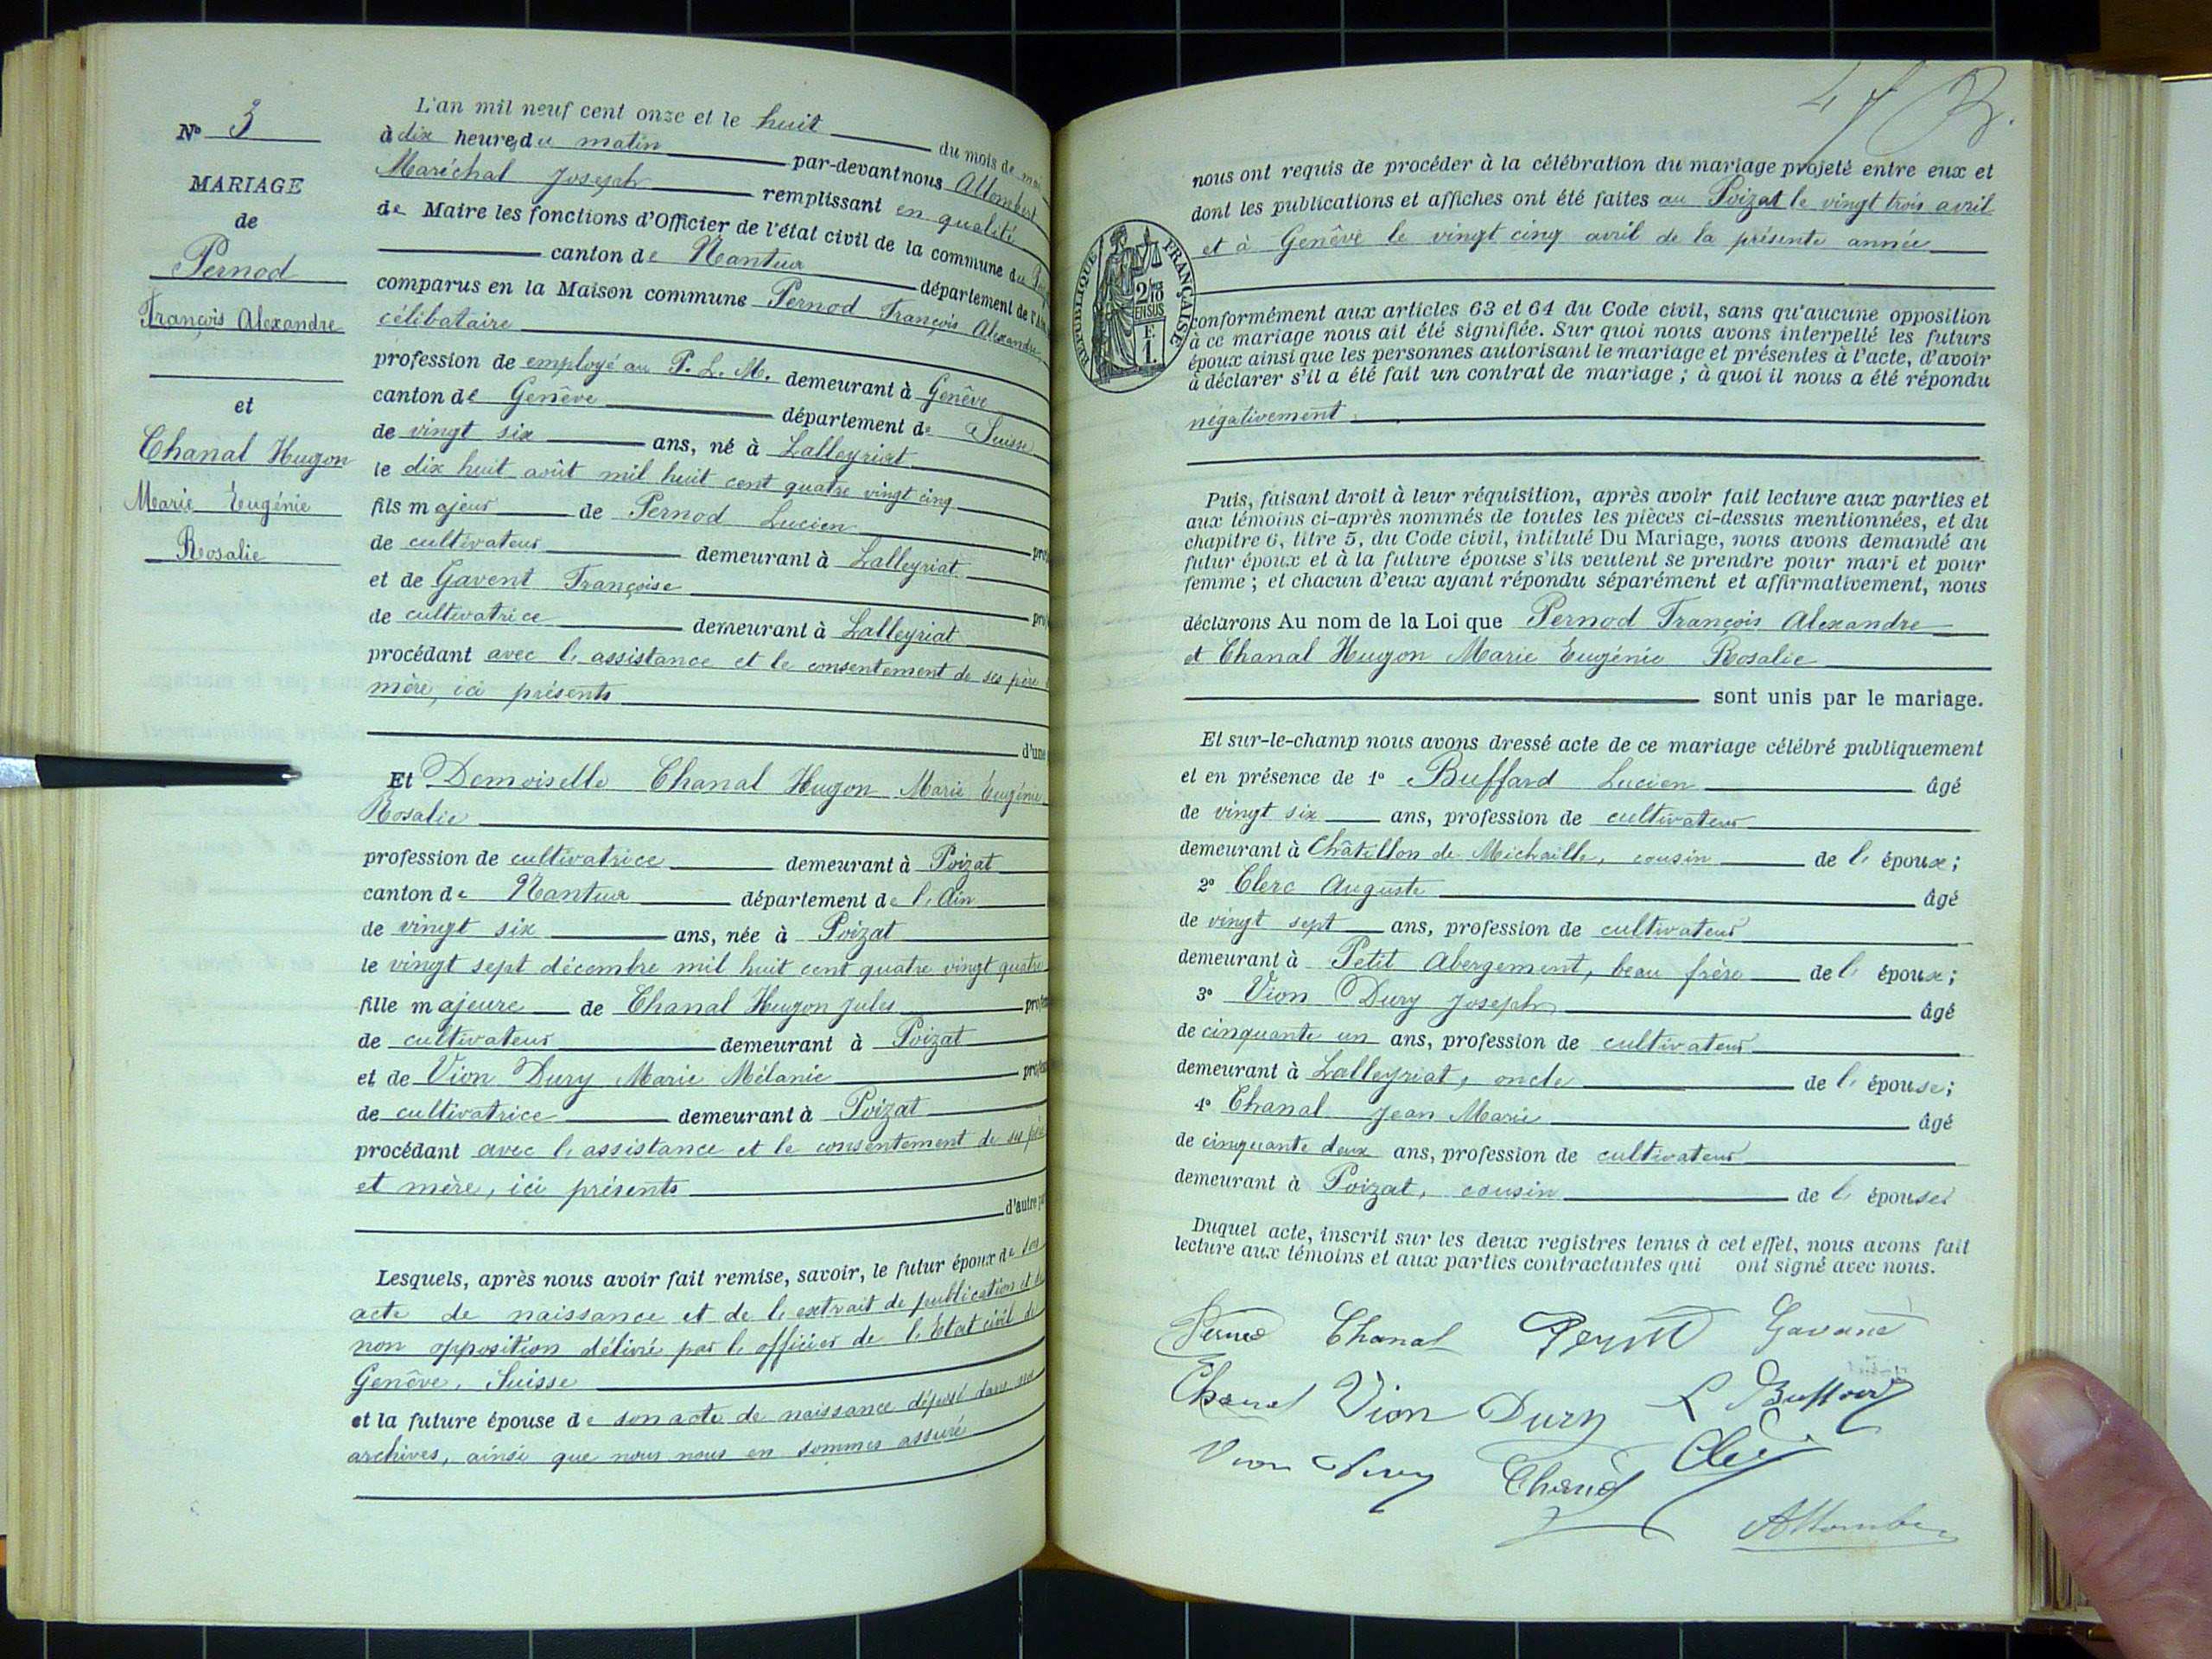 Nº 3
MARIAGE
de
Pernod
François Alexandre
et
Chanal Hugon
Marie Eugénie
Rosalie
L'an mil neuf cent onze et le huit du mois de mai
à dix heures du matin par-devant nous Allombert
Maréchal Joseph remplissant en qualité
de Maire les fonctions d'Officier de l'état civil de la commune du
canton de Nantua département de l'Ain
comparus en la Maison commune Pernod François Alexandre
célibataire
profession de employé au P. L. M. demeurant à Genève
canton de Genève département de Suisse
de vingt six ans, né à Lalleyriat
le dix huit août mil huit cent quatre vingt cinq
fils majeur de Pernod Lucien
de cultivateur demeurant à Lalleyriat
et de Gavent Françoise
de cultivatrice demeurant à Lalleyriat
procédant avec l'assistance et le consentement de ses père
mère, ici présents
d'une
Et Demoiselle Chanal Hugon Marie Eugénie
Rosalie
profession de cultivatrice demeurant à Poizat
canton de Nantua département de l'Ain
de vingt six ans, née à Poizat
le vingt sept décembre mil huit cent quatre vingt quatre
fille majeure de Chanal Hugon Jules
de cultivateur demeurant à Poizat
et de Vion Dury Marie Mélanie
de cultivatrice demeurant à Poizat
procédant avec l'assistance et le consentement de ses père
et mère, ici présents
d'autre
Lesquels, après nous avoir fait remise, savoir, le futur époux de son
acte de naissance et de l'extrait de publication et de
non opposition délivré par l'officier de l'Etat civil de
Genève, Suisse
et la future épouse de son acte de naissance déposé dans nos
archives, ainsi que nous nous en sommes assuré
nous ont requis de procéder à la célébration du mariage projeté entre eux et
dont les publications et affiches ont été faites au Poizat le vingt trois avril
et à Genève le vingt cinq avril de la présente année
RÉPUBLIQUE FRANÇAISE
2/10
EN SUS
F.
1.
conformément aux articles 63 et 64 du Code civil, sans qu'aucune opposition
à ce mariage nous ait été signifiée. Sur quoi nous avons interpellé les futurs
époux ainsi que les personnes autorisant le mariage et présentes à l'acte, d'avoir
à déclarer s'il a été fait un contrat de mariage ; à quoi il nous a été répondu
négativement.
Puis, faisant droit à leur réquisition, après avoir fait lecture aux parties et
aux témoins ci-après nommés de toutes les pièces ci-dessus mentionnées, et du
chapitre 6, titre 5, du Code civil, intitulé Du Mariage, nous avons demandé au
futur époux et à la future épouse s'ils veulent se prendre pour mari et pour
femme ; et chacun d'eux ayant répondu séparément et affirmativement, nous
déclarons Au nom de la Loi que Pernod François Alexandre
et Chanal Hugon Marie Eugénie Rosalie
sont unis par le mariage.
Et sur-le-champ nous avons dressé acte de ce mariage célébré publiquement
et en présence de 1º Buffard Lucien âgé
de vingt six ans, profession de cultivateur
demeurant à Châtillon de Michaille, cousin de l'époux;
2º Clerc Auguste âgé
de vingt sept ans, profession de cultivateur
demeurant à Petit Abergement, beau frère de l'époux;
3º Vion Dury Joseph âgé
de cinquante un ans, profession de cultivateur
demeurant à Lalleyriat, oncle de l'épouse;
4º Chanal Jean Marie âgé
de cinquante deux ans, profession de cultivateur
demeurant à Poizat, cousin de l'épouse;
Duquel acte, inscrit sur les deux registres tenus à cet effet, nous avons fait
lecture aux témoins et aux parties contractantes qui ont signé avec nous.
Chanal
Vion Dury L Buffard
Vion Dury Chanal